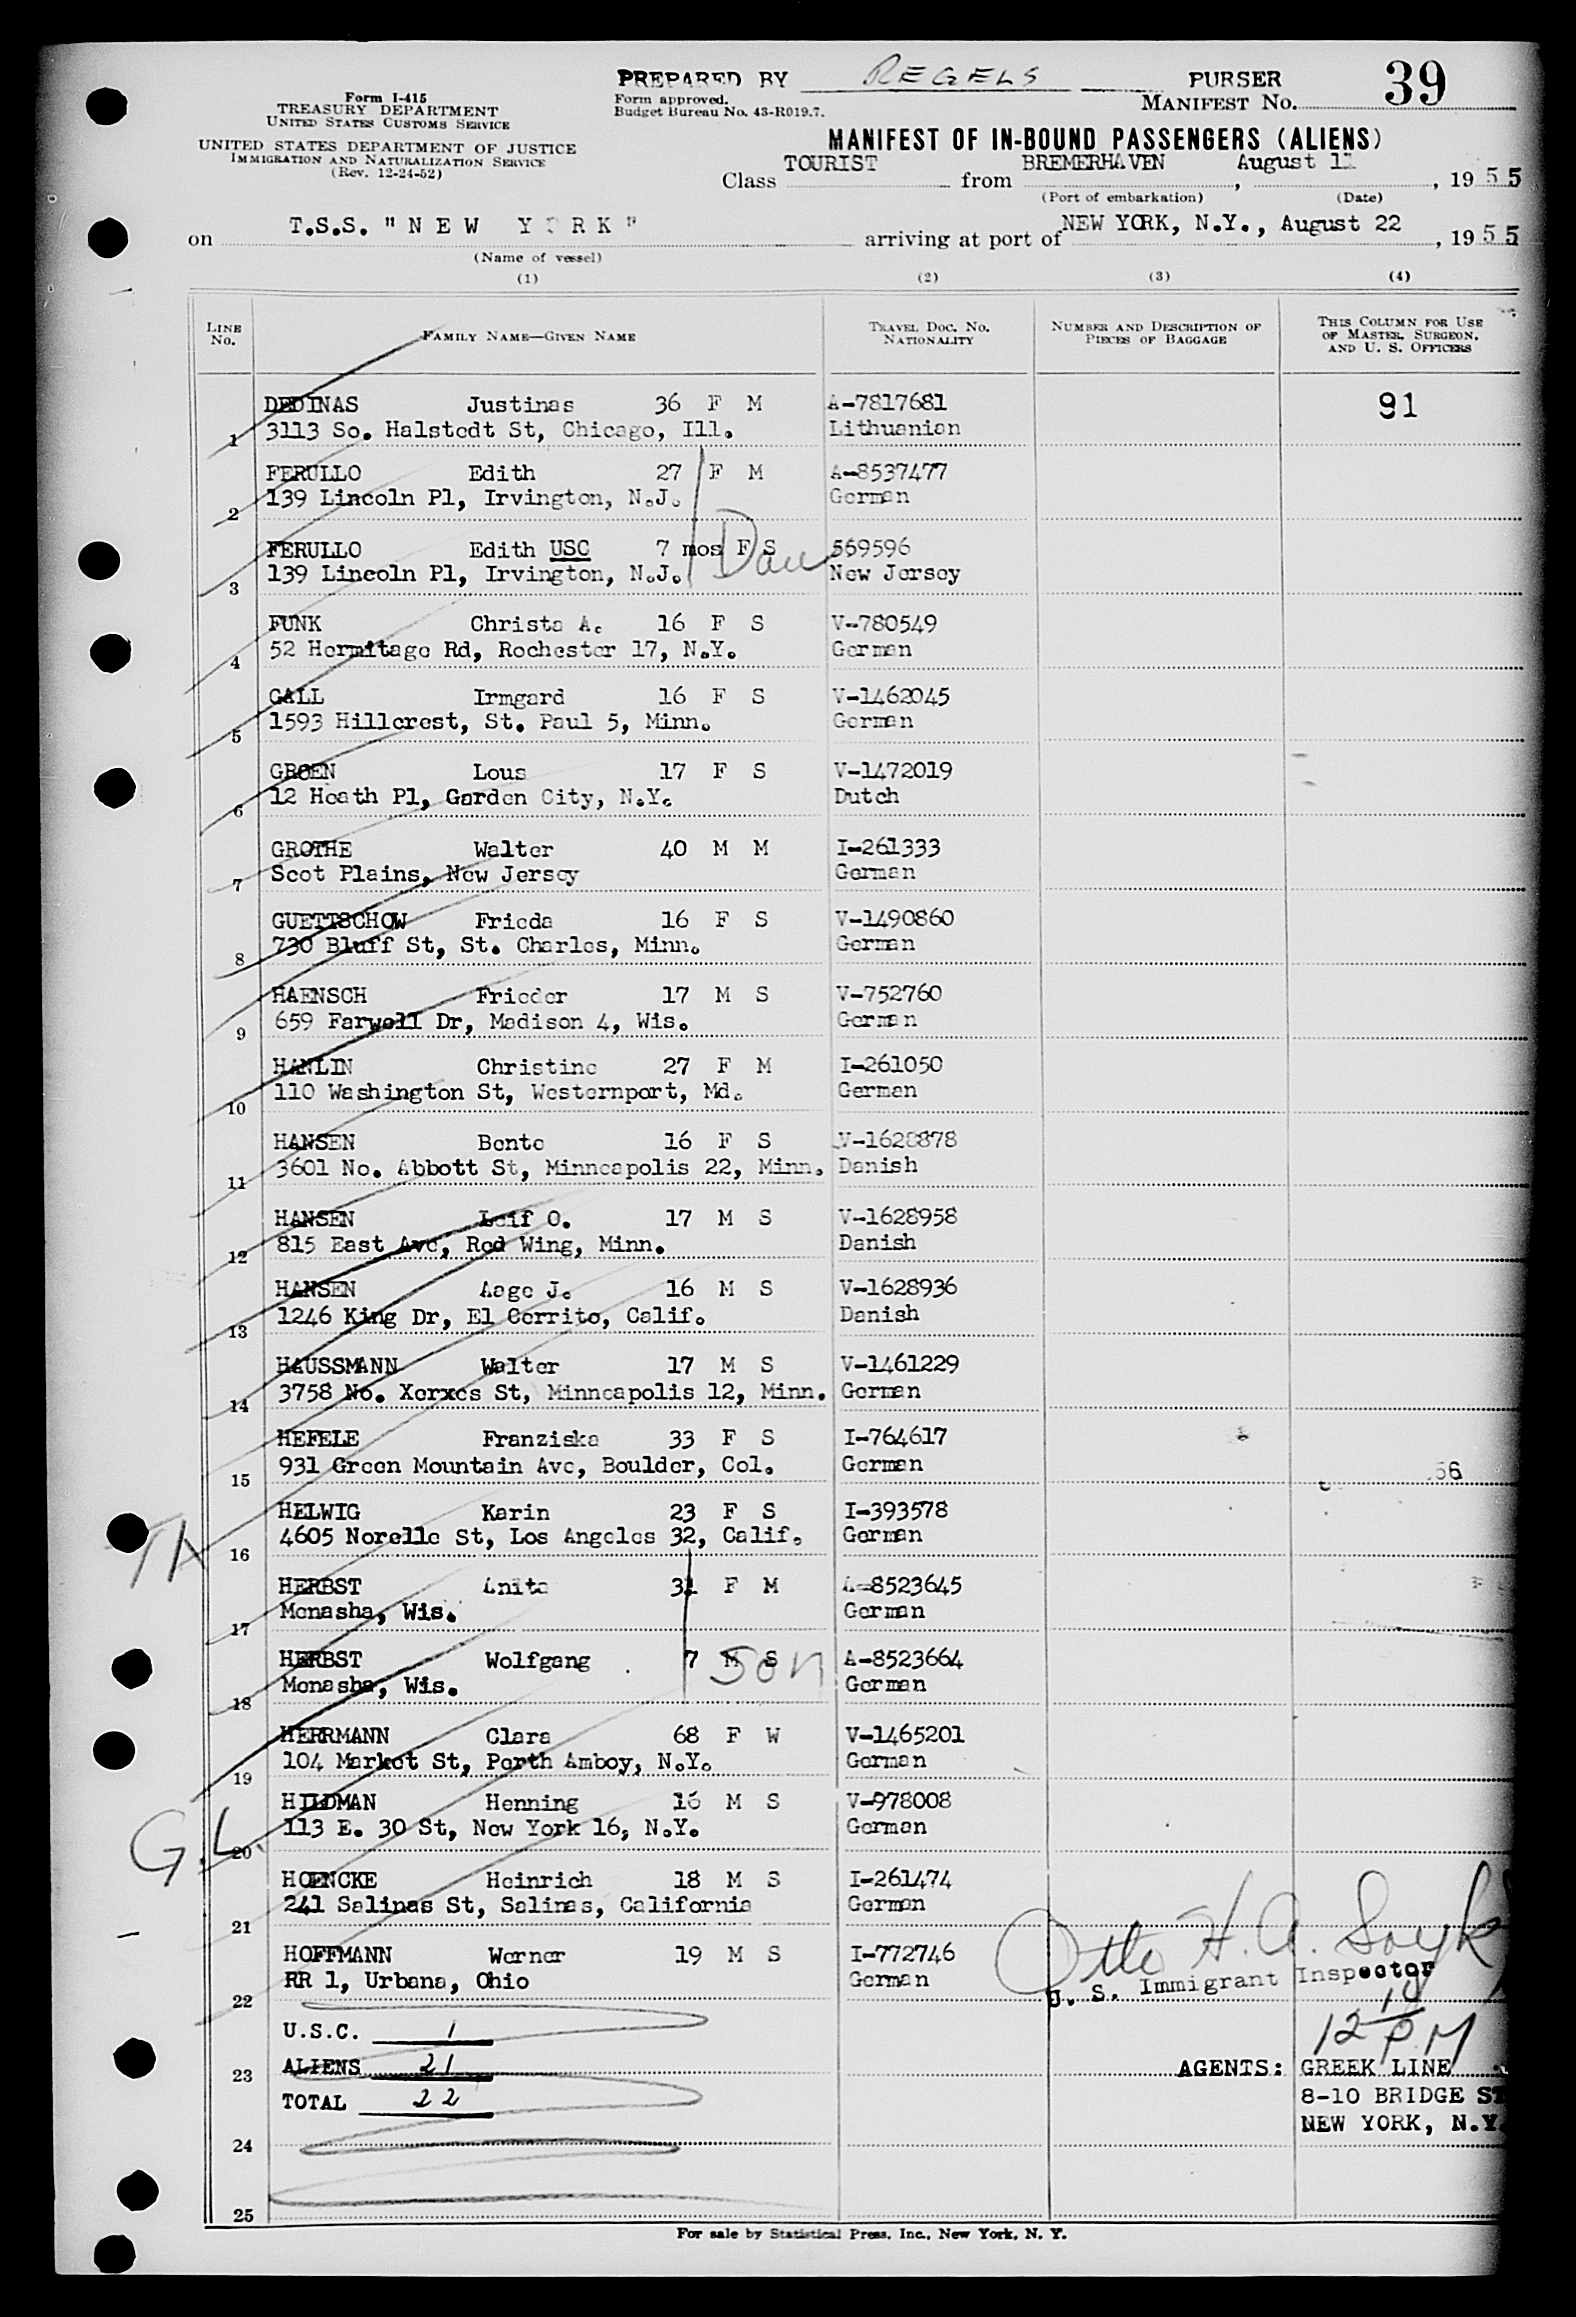 PREPARED BY REGELS PURSER 39
Form I-415
TREASURY DEPARTMENT
UNITED STATES CUSTOMS SERVICE
UNITED STATES DEPARTMENT OF JUSTICE
IMMIGRATION AND NATURALIZATION SERVICE
(Rev. 12-24-52)
Form approved.
Budget Bureau No. 43-R019.7.
MANIFEST NO.
MANIFEST OF IN-BOUND PASSENGERS (ALIENS)
Class TOURIST from BREMERHAVEN, August 11, 1955
(Port of embarkation) (Date)
on T.S.S. "NEW YORK" arriving at port of NEW YORK, N.Y., August 22, 1955
(Name of vessel)
(1) (2) (3) (4)
LINE NO. FAMILY NAME—GIVEN NAME TRAVEL DOC. NO. NATIONALITY NUMBER AND DESCRIPTION OF PIECES OF BAGGAGE THIS COLUMN FOR USE OF MASTER, SURGEON, AND U. S. OFFICERS
DEDINAS Justinas 36 F M A-7817681 91
1 3113 So. Halstedt St, Chicago, Ill. Lithuanian
FERULLO Edith 27 F M A-8537477
2 139 Lincoln Pl, Irvington, N.J. German
FERULLO Edith USC 7 mos F S Dau 569596
3 139 Lincoln Pl, Irvington, N.J. New Jersey
FUNK Christa A. 16 F S V-780549
4 52 Hermitage Rd, Rochester 17, N.Y. German
GALL Irmgard 16 F S V-1462045
5 1593 Hillcrest, St. Paul 5, Minn. German
GROEN Lous 17 F S V-1472019
6 12 Heath Pl, Garden City, N.Y. Dutch
GROTHE Walter 40 M M I-261333
7 Scot Plains, New Jersey German
GUETTSCHOW Frieda 16 F S V-1490860
8 730 Bluff St, St. Charles, Minn. German
HAENSCH Frieder 17 M S V-752760
9 659 Farwell Dr, Madison 4, Wis. German
HANLIN Christine 27 F M I-261050
10 110 Washington St, Westernport, Md. German
HANSEN Bente 16 F S V-1628878
11 3601 No. Abbott St, Minneapolis 22, Minn. Danish
HANSEN Leif O. 17 M S V-1628958
12 815 East Ave, Red Wing, Minn. Danish
HANSEN Aage J. 16 M S V-1628936
13 1246 King Dr, El Cerrito, Calif. Danish
HAUSSMANN Walter 17 M S V-1461229
14 3758 No. Xerxes St, Minneapolis 12, Minn. German
HEFELE Franziska 33 F S I-764617
15 931 Green Mountain Ave, Boulder, Col. German
HELWIG Karin 23 F S I-393578
16 4605 Norelle St, Los Angeles 32, Calif. German
HERBST Anita 31 F M A-8523645
17 Menasha, Wis. German
HERBST Wolfgang 7 M S Son A-8523664
18 Menasha, Wis. German
HERRMANN Clara 68 F W V-1465201
19 104 Market St, Perth Amboy, N.Y. German
HILDMAN Henning 16 M S V-978008
G.L. 20 113 E. 30 St, New York 16, N.Y. German
HOENCKE Heinrich 18 M S I-261474
21 241 Salinas St, Salinas, California German
HOFFMANN Werner 19 M S I-772746
22 RR 1, Urbana, Ohio German
Otto H. A.
U. S. Immigrant Inspector
U.S.C. 1
12 10 P.M
23 ALIENS 21 AGENTS: GREEK LINE
TOTAL 22 8-10 BRIDGE ST
NEW YORK, N.Y.
24
25
For sale by Statistical Press, Inc., New York, N. Y.